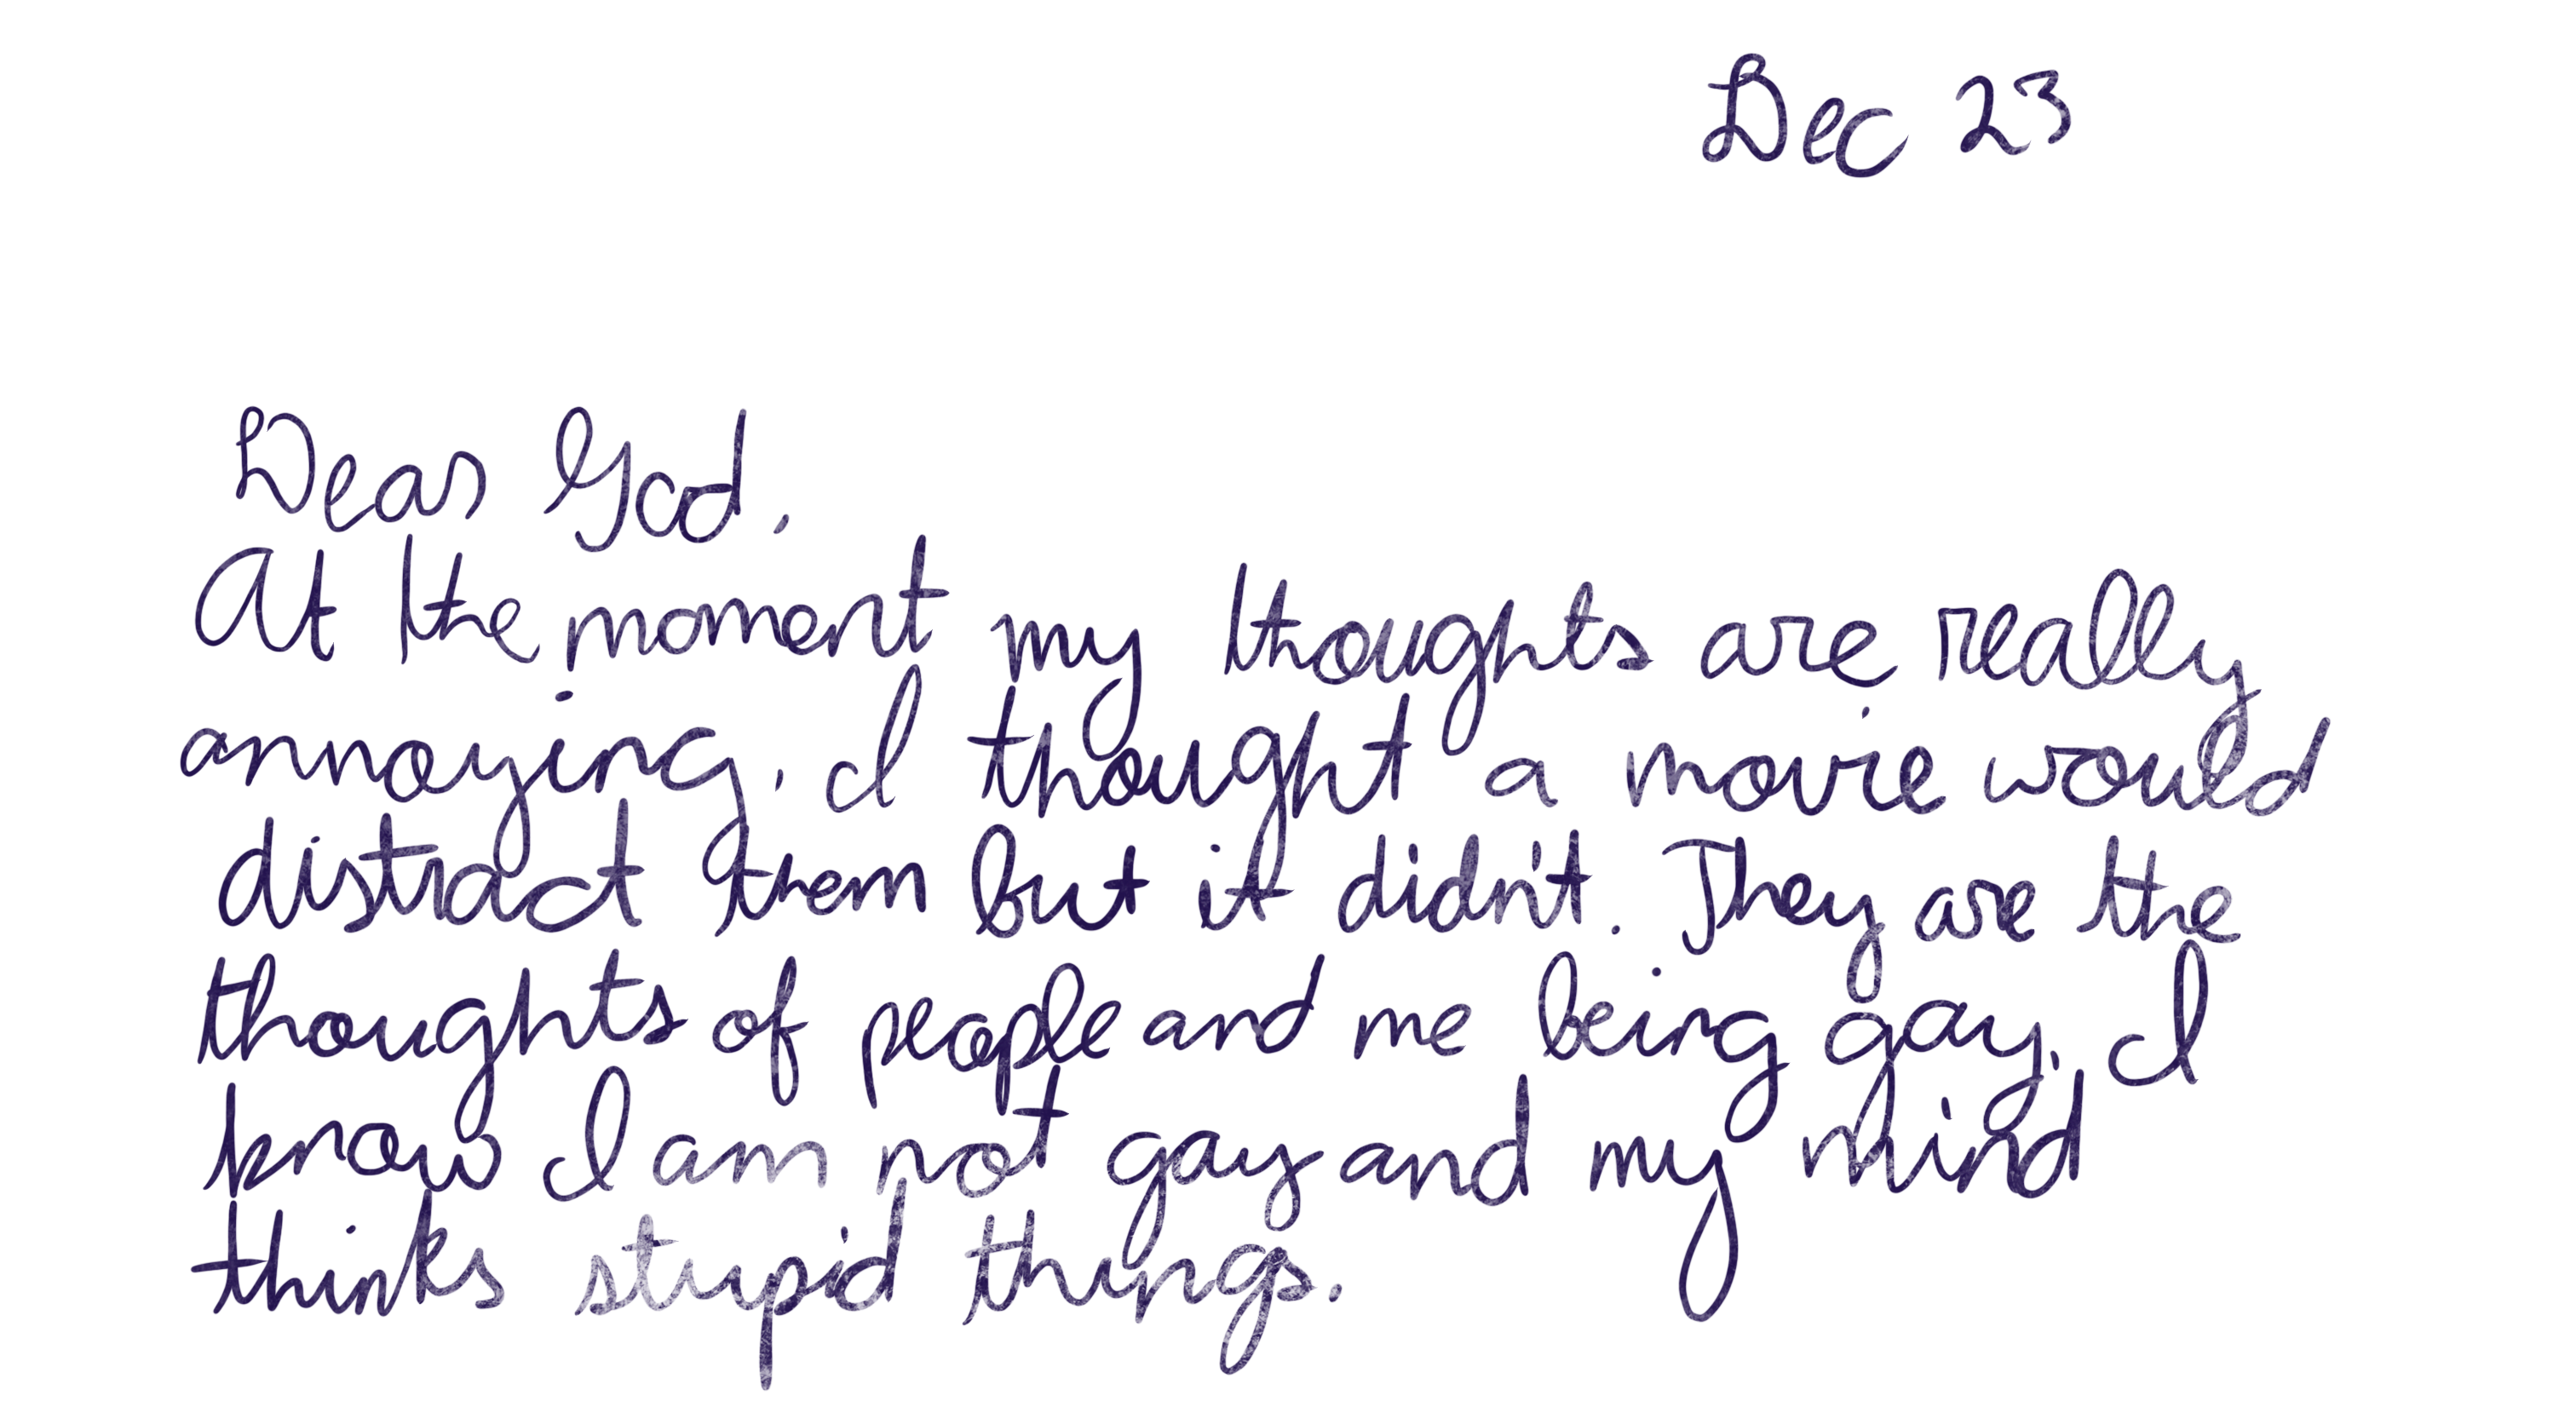 Dec 23
Dear God,
At the moment my thoughts are really
annoying. I thought a movie would
distract them but it didn't. They are the
thoughts of people and me being gay. I
know I am not gay and my mind
thinks stupid things.